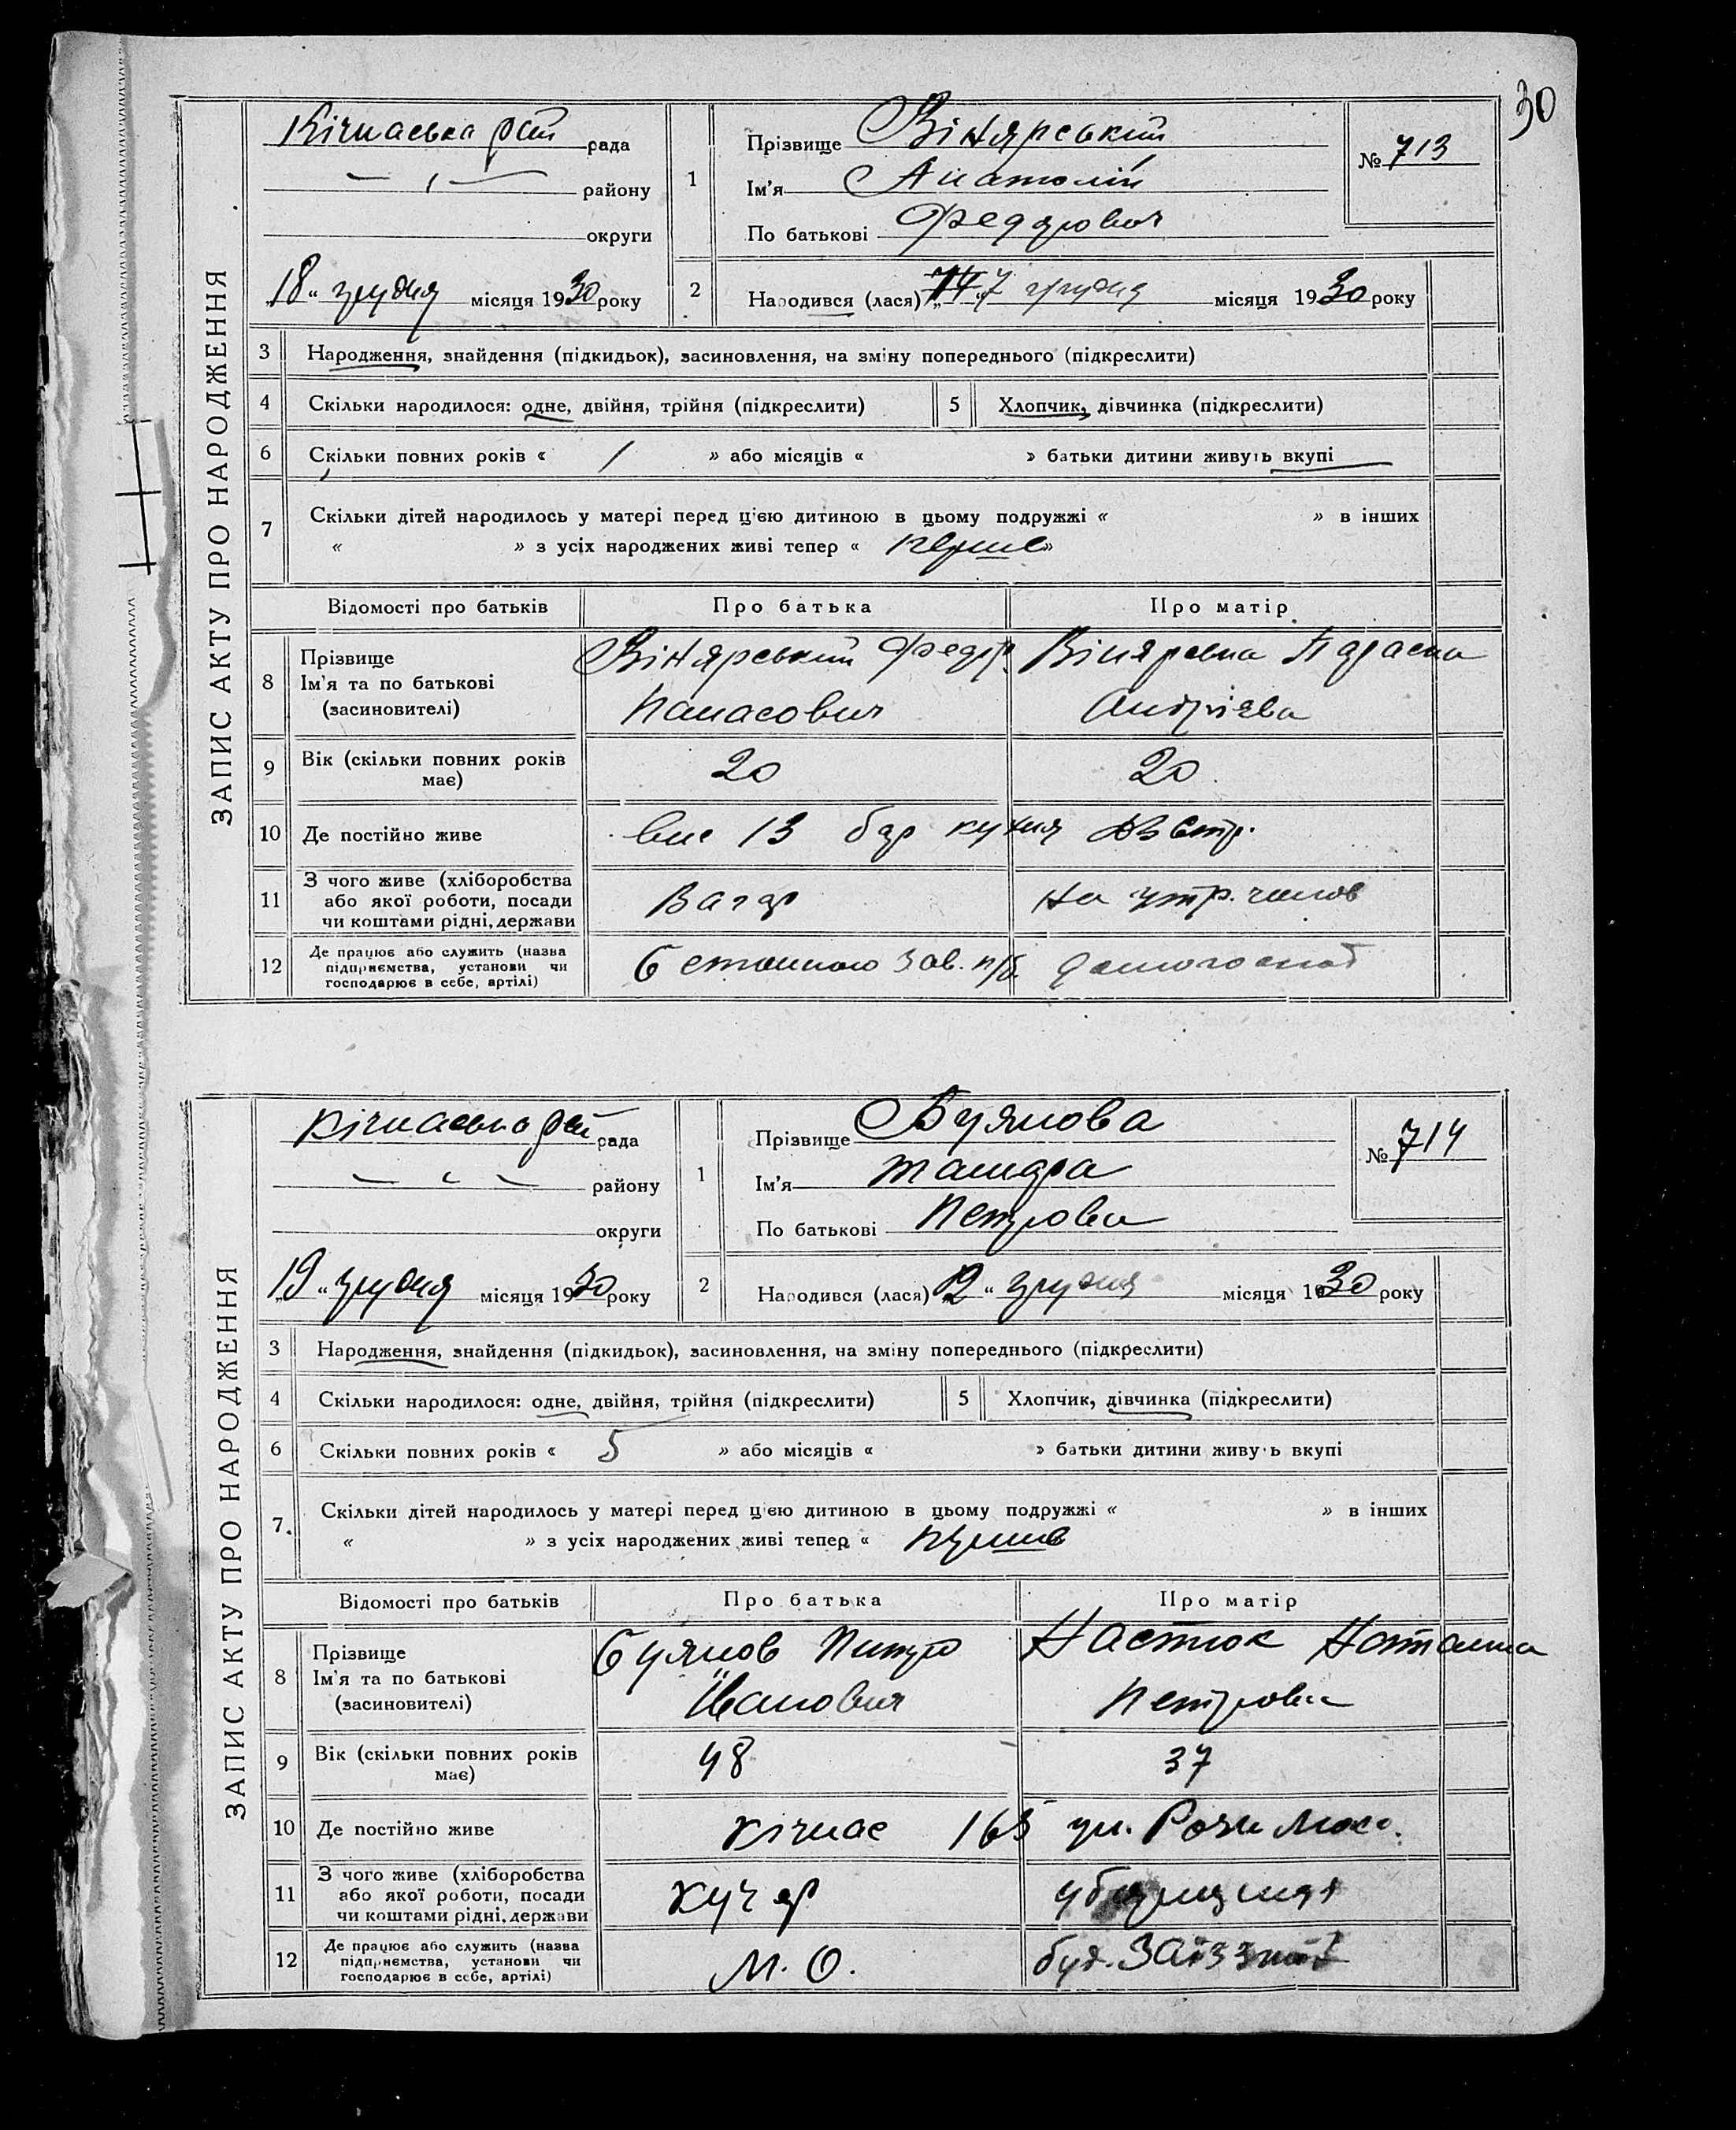 30
ЗАПИС АКТУ ПРО НАРОДЖЕННЯ
Кічкаська рада
району
округи
„18“ грудня місяця 1930 року
1
Прізвище Вінярський
Ім'я Анатолій
По батькові Федорович
№ 713
2
Народився (лася) „7 грудня місяця 1930 року
3 Народження, знайдення (підкидьок), засиновлення, на зміну попереднього (підкреслити)
4 Скільки народилося: одне, двійня, трійня (підкреслити) 5 Хлопчик, дівчинка (підкреслити)
6 Скільки повних років « 1 » або місяців « » батьки дитини живуть вкупі
7 Скільки дітей народилось у матері перед цією дитиною в цьому подружжі « » в інших
« » з усіх народжених живі тепер « перше »
Відомості про батьків Про батька Про матір
8 Прізвище Ім'я та по батькові (засновителі)
Вінярський Федір Вінярська
Панасович Андрієва
9 Вік (скільки повних років має) 20 20
10 Де постійно живе 13 бар
11 З чого живе (хліборобства або якої роботи, посади чи коштами рідні, держави На утр. чолов
12 Де працює або служить (назва підприємства, установи чи господарює в себе, артілі)
ЗАПИС АКТУ ПРО НАРОДЖЕННЯ
Кічкаська рада
району
округи
„19“ грудня місяця 1930 року
1
Прізвище Буянова
Ім'я Тамара
По батькові Петровна
№ 714
2
Народився (лася) „12“ грудня місяця 1930 року
3 Народження, знайдення (підкидьок), засиновлення, на зміну попереднього (підкреслити)
4 Скільки народилося: одне, двійня, трійня (підкреслити) 5 Хлопчик, дівчинка (підкреслити)
6 Скільки повних років « 5 » або місяців « » батьки дитини живуть вкупі
7. Скільки дітей народилось у матері перед цією дитиною в цьому подружжі « » в інших
« » з усіх народжених живі тепер «
Відомості про батьків Про батька Про матір
8 Прізвище Ім'я та по батькові (засиновителі)
Буянов Питро Настюк Наталка
Іванович Петровна
9 Вік (скільки повних років має) 48 37
10 Де постійно живе Кічкас 165 ул. Рози Люкс.
11 З чого живе (хліборобства або якої роботи, посади чи коштами рідні, держави Кучер
12 Де працює або служить (назва підприємства, установи чи господарює в себе, артілі) М. О. буд.